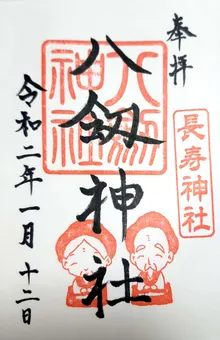 奉拝
長寿神社
八剱神社
八釼神社
令和二年一月十二日